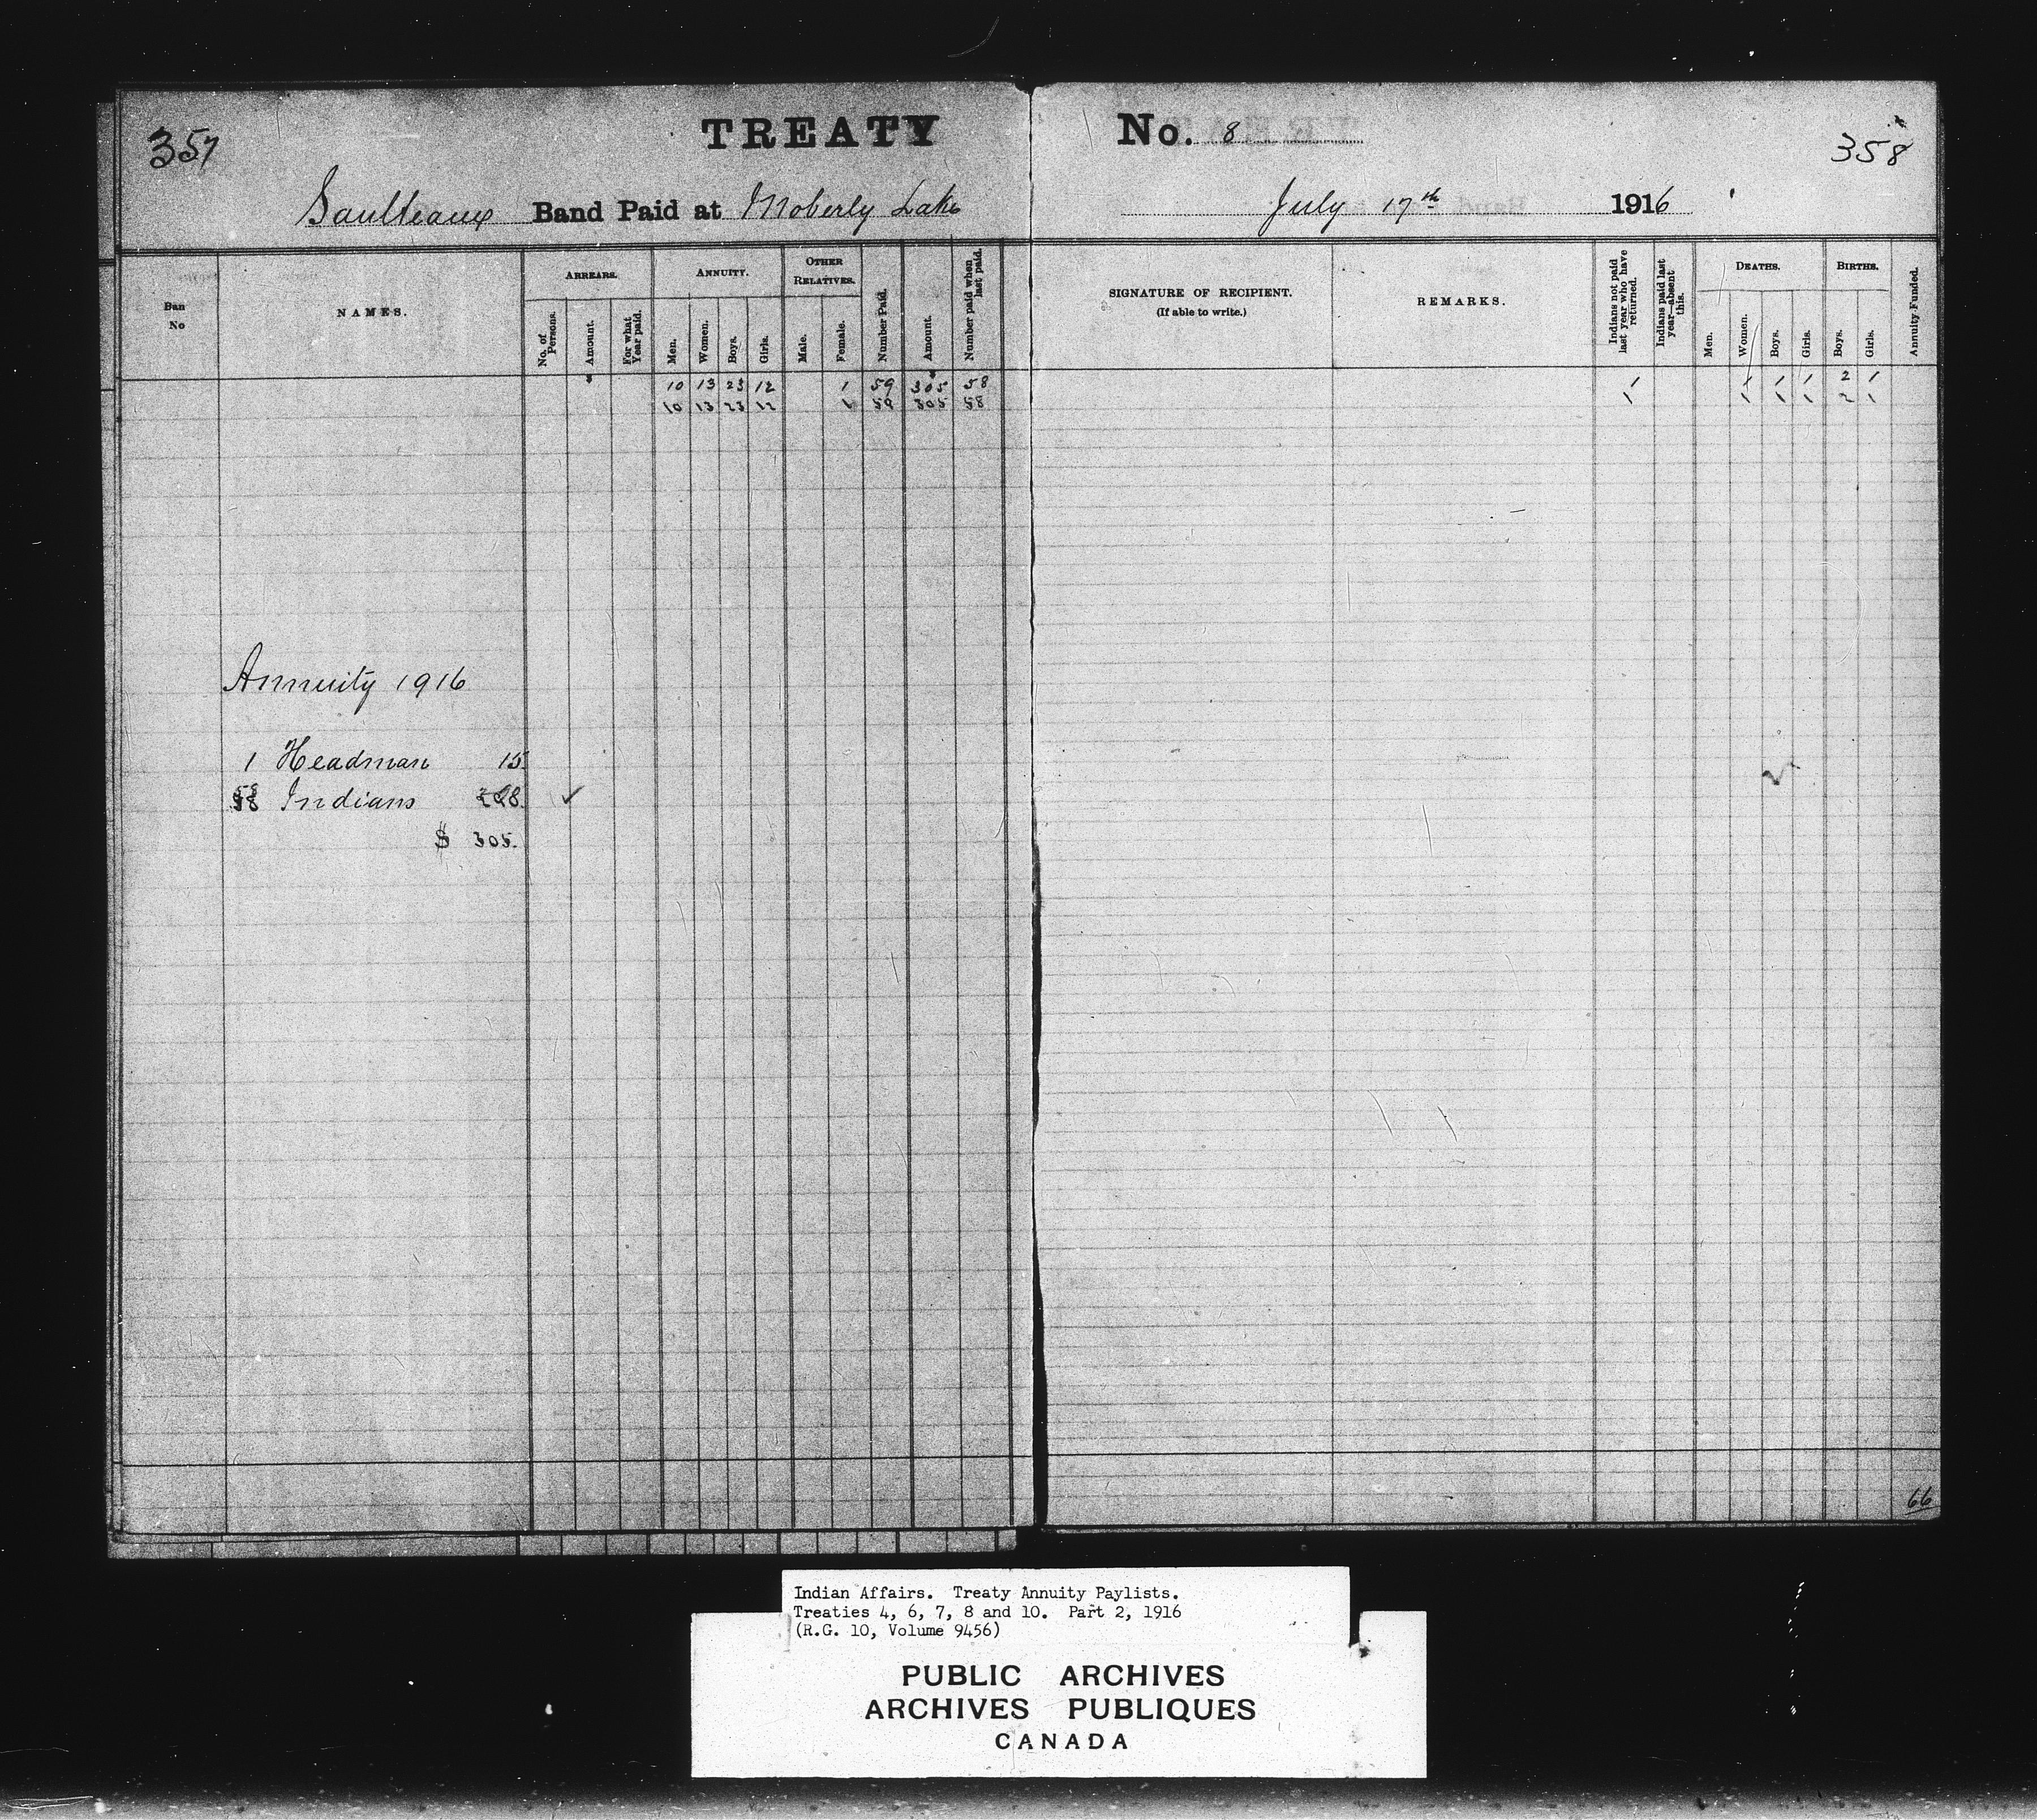 357
TREATY No. 8
358
Saulteaux Band Paid at Moberly Lake July 17th 1916
Ban No
NAMES.
ARREARS.
No. of Persons.
Amount.
For what Year paid.
ANNUITY.
Men.
Women.
Boys.
Girls.
OTHER RELATIVES.
Male.
Female.
Number Paid.
Amount.
Number paid when last paid.
SIGNATURE OF RECIPIENT.
(If able to write.)
REMARKS.
Indians not paid last year who have returned.
Indians paid last year—absent this.
DEATHS.
Men.
Women.
Boys.
Girls.
BIRTHS.
Boys.
Girls.
Annuity Funded.
10 13 23 12 1 59 305 58 1 1 1 1 2 1
10 13 23 12 1 59 305 58 1 1 1 1 2 1
Annuity 1916
1 Headman 15.
58 Indians
$ 305.
66
Indian Affairs. Treaty Annuity Paylists.
Treaties 4, 6, 7, 8 and 10. Part 2, 1916
(R.G. 10, Volume 9456)
PUBLIC ARCHIVES
ARCHIVES PUBLIQUES
CANADA